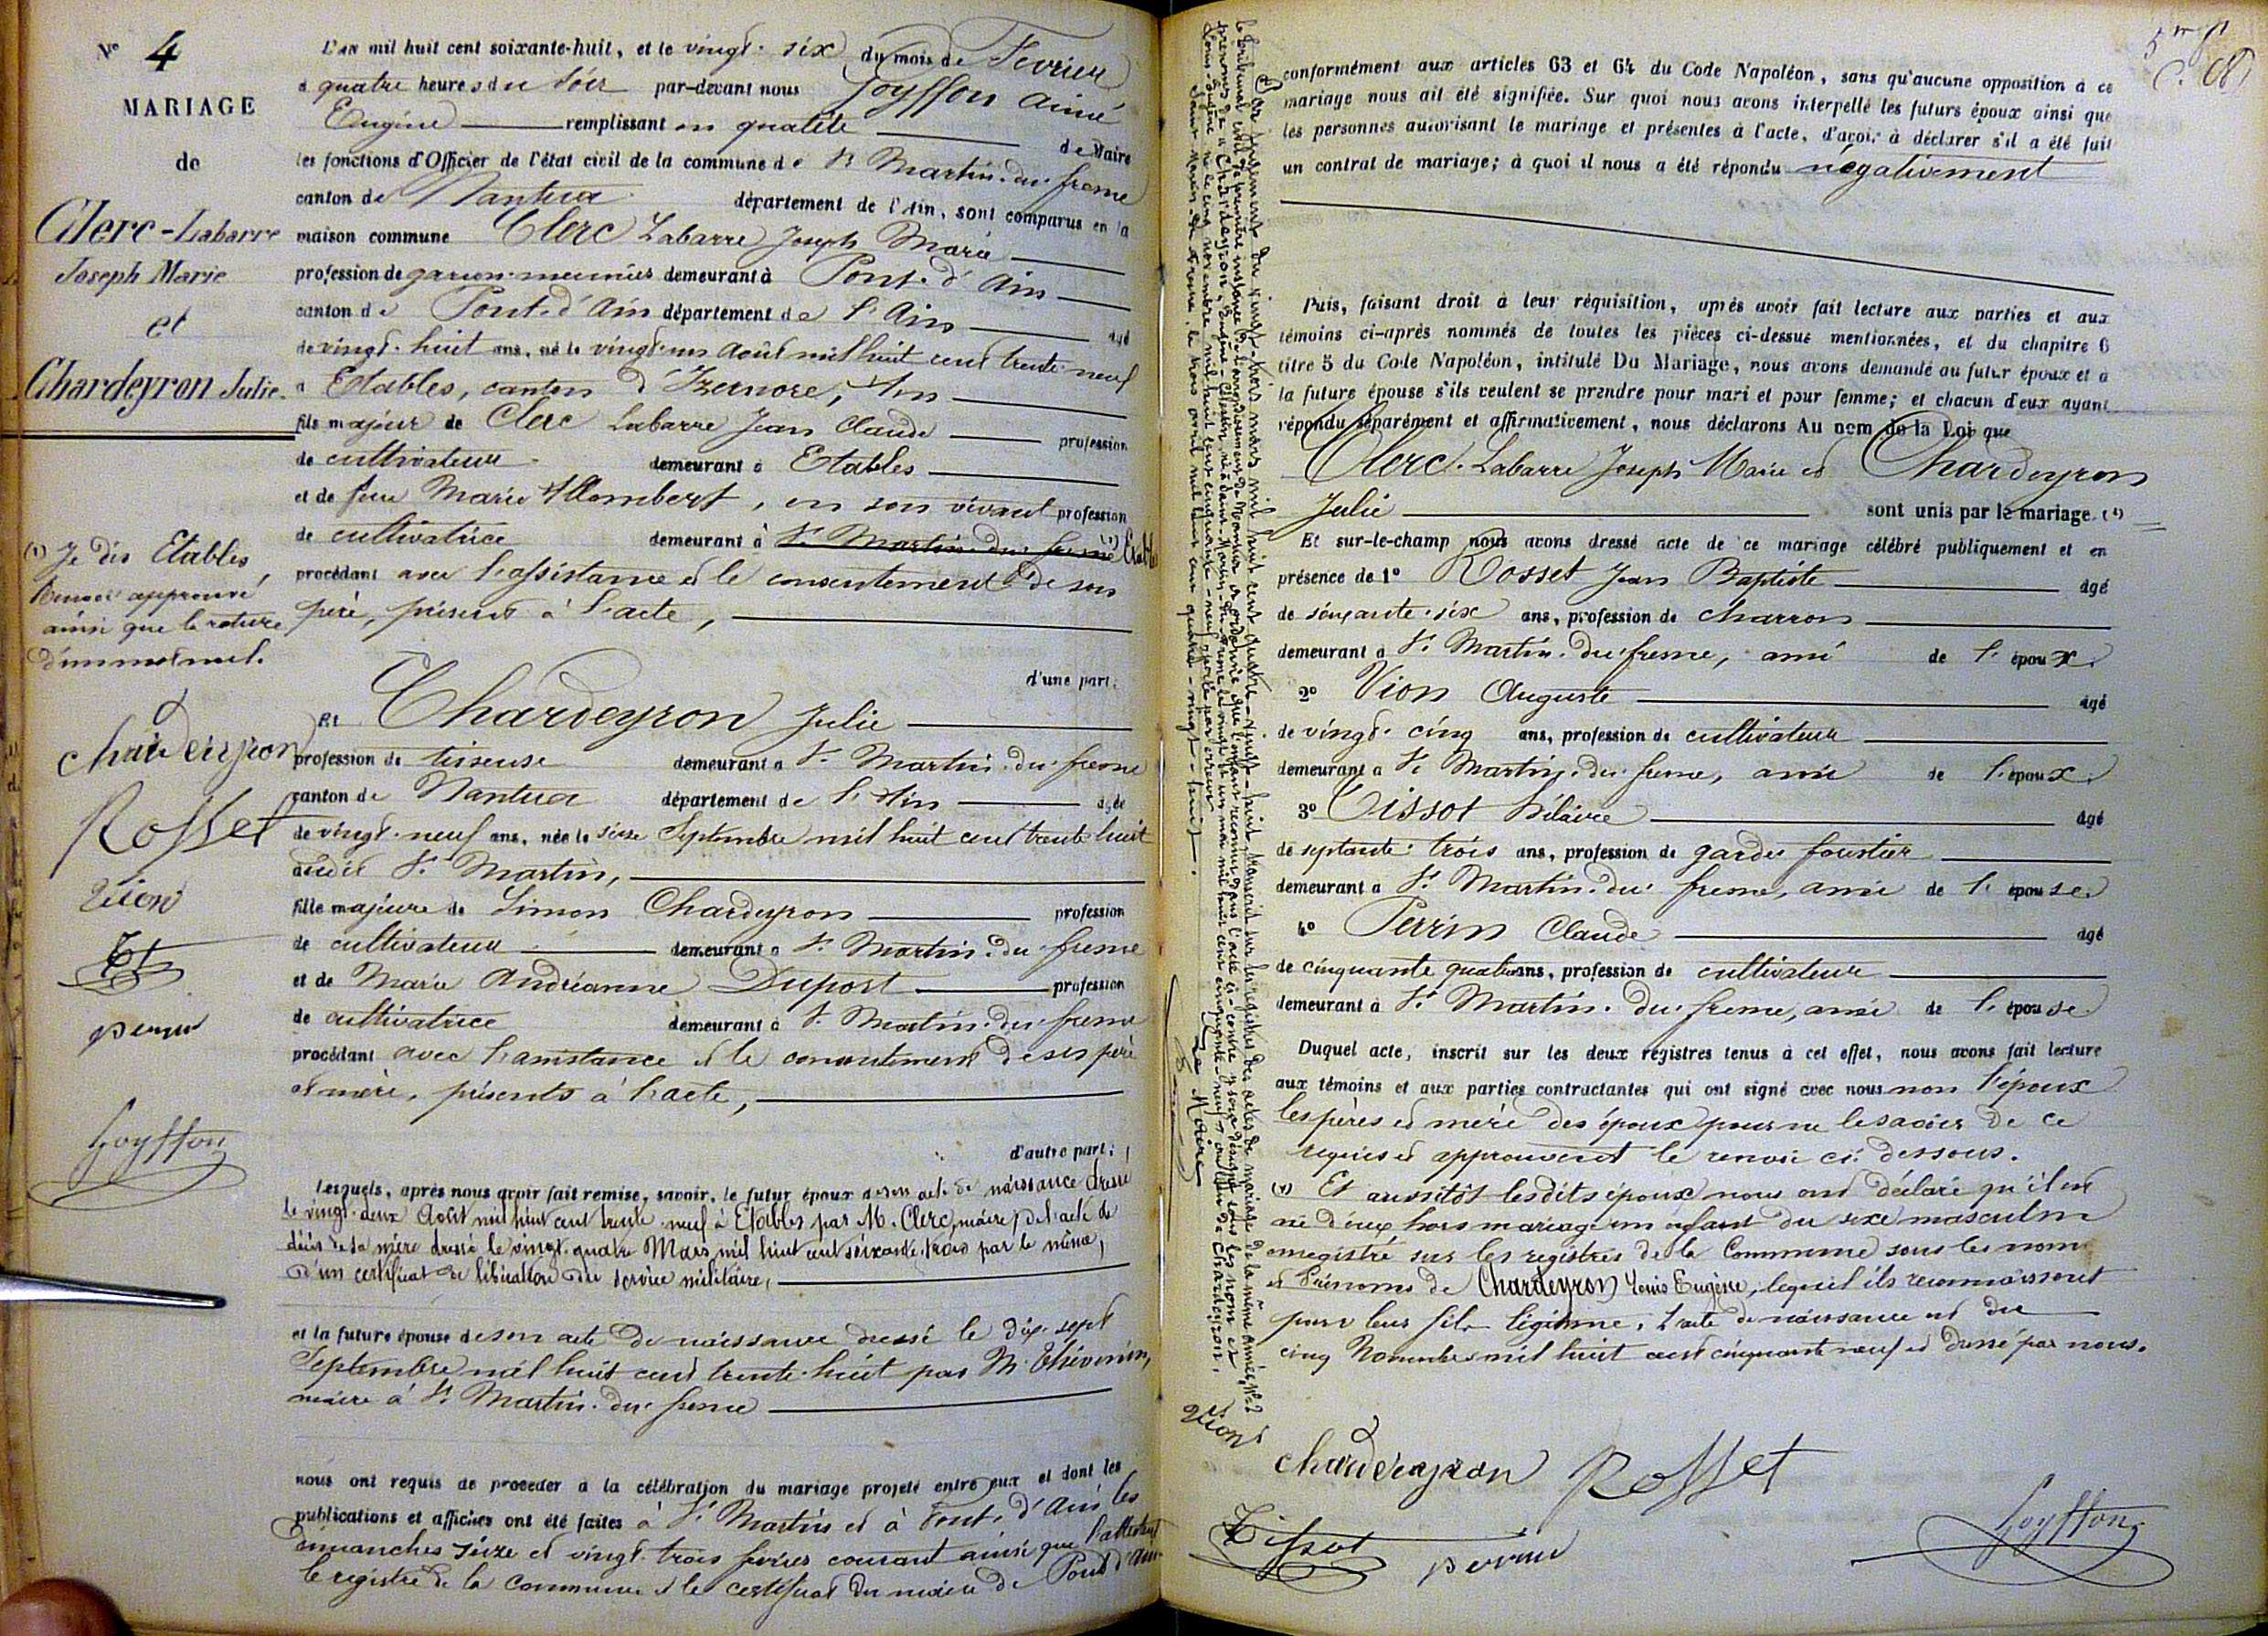 N° 4
MARIAGE
de
Clerc-Labarre
Joseph Marie
et
Chardeyron Julie.
(1) Je dis Etables,
Renvoi approuvé
ainsi que la rature
d'un mot nul.
chardeyron
Rosset
Vion
Tt
perrin
Goyffon
L'an mil huit cent soixante-huit, et le vingt-six du mois de Février
à quatre heures du soir par-devant nous Goyffon Aimé
Eugène remplissant en qualité de Maire
les fonctions d'Officier de l'état civil de la commune de St Martin-du-fresne
canton de Nantua département de l'Ain, sont comparus en la
maison commune Clerc Labarre Joseph Marie
profession de garçon-meunier demeurant à Pont-d'Ain
canton de Pont-d'Ain département de l'Ain agé
de vingt-huit ans, né le vingt-un Août mil huit cent trente-neuf
à Etables, canton d'Izernore, Ain
fils majeur de Clerc Labarre Jean Claude profession
de cultivateur demeurant à Etables
et de feue Marie Allombert, en son vivant profession
de cultivatrice demeurant à St Martin-du-fresne (1) Etables
procédant avec l'assistance et le consentement de son
père, présent à l'acte,
d'une part;
Et Chardeyron Julie
profession de tisseuse demeurant à St Martin-du-fresne
canton de Nantua département de l'Ain agée
de vingt-neuf ans, née le seize Septembre mil huit cent trente-huit
audit St Martin,
fille majeure de Simon Chardeyron profession
de cultivateur demeurant à St Martin-du-fresne
et de Marie Andréanne Duport profession
de cultivatrice demeurant à St Martin-du-fresne
procédant avec l'assistance et le consentement de ses père
et mère, présents à l'acte,
d'autre part;
Lesquels, après nous avoir fait remise, savoir, le futur époux de son acte de naissance dressé
le vingt-deux Août mil huit cent trente-neuf à Etables par M. Clerc, maire, de l'acte de
décès de sa mère dressé le vingt-quatre Mars mil huit cent soixante-trois par le même,
d'un certificat de libération du service militaire,
et la future épouse de son acte de naissance dressé le dix-sept
Septembre mil huit cent trente-huit par M. Thévenin,
maire à St Martin-du-fresne
nous ont requis de procéder à la célébration du mariage projeté entre eux et dont les
publications et affiches ont été faites à St Martin et à Pont-d'Ain les
dimanches seize et vingt-trois février courant ainsi que l'attestent
le registre de la Commune et le certificat du maire de Pont d'Ain
(2) Par jugement du vingt-trois mars mil huit cent quatre-vingt-huit, transcrit sur les registres des actes de mariage de la même année, N° 2
le tribunal civil de première instance de l'arrondissement de Nantua a ordonné que l'enfant reconnu dans l'acte ci-contre y sera désigné sous les nom et
prénoms de Chardeyron, Eugène-
Louis Eugène né le cinq novembre mil huit cent cinquante-neuf
Saint-Martin-du-Fresne, le trois avril mil huit cent quatre-vingt-huit.
Le Maire
conformément aux articles 63 et 64 du Code Napoléon, sans qu'aucune opposition à ce
mariage nous ait été signifiée. Sur quoi nous avons interpellé les futurs époux ainsi que
les personnes autorisant le mariage et présentes à l'acte, d'avoir à déclarer s'il a été fait
un contrat de mariage; à quoi il nous a été répondu négativement
Puis, faisant droit à leur réquisition, après avoir fait lecture aux parties et aux
témoins ci-après nommés de toutes les pièces ci-dessus mentionnées, et du chapitre 6
titre 5 du Code Napoléon, intitulé Du Mariage, nous avons demandé au futur époux et à
la future épouse s'ils veulent se prendre pour mari et pour femme; et chacun d'eux ayant
répondu séparément et affirmativement, nous déclarons Au nom de la Loi que
Clerc-Labarre Joseph Marie et Chardeyron
Julie sont unis par le mariage (1)
Et sur-le-champ nous avons dressé acte de ce mariage célébré publiquement et en
présence de 1° Rosset Jean Baptiste agé
de soixante-six ans, profession de charron
demeurant à St Martin-du-fresne, ami de l'époux.
2° Vion Auguste agé
de vingt-cinq ans, profession de cultivateur
demeurant à St Martin-du-fresne, ami de l'époux.
3° Tissot hilaire agé
de septante-trois ans, profession de garde forestier
demeurant à St Martin-du-fresne, ami de l'épouse.
4° Perrin Claude agé
de cinquante quatre ans, profession de cultivateur
demeurant à St Martin-du-fresne, ami de l'épouse
Duquel acte, inscrit sur les deux registres tenus à cet effet, nous avons fait lecture
aux témoins et aux parties contractantes qui ont signé avec nous non l'époux
les pères et mère des époux pour ne le savoir de ce
requis et approuvent le renvoi ci-dessous.
(1) Et aussitôt lesdits époux nous ont déclaré qu'il est
né d'eux hors mariage un enfant du sexe masculin
enregistré sur les registres de la Commune sous les nom
et Prénoms de Chardeyron Louis Eugène, lequel ils reconnaissent
pour leur fils légitime. L'acte de naissance est du
cinq Novembre mil huit cent cinquante neuf et dressé par nous.
Vion
chardeyron Rosset
Tissot perrin Goyffon